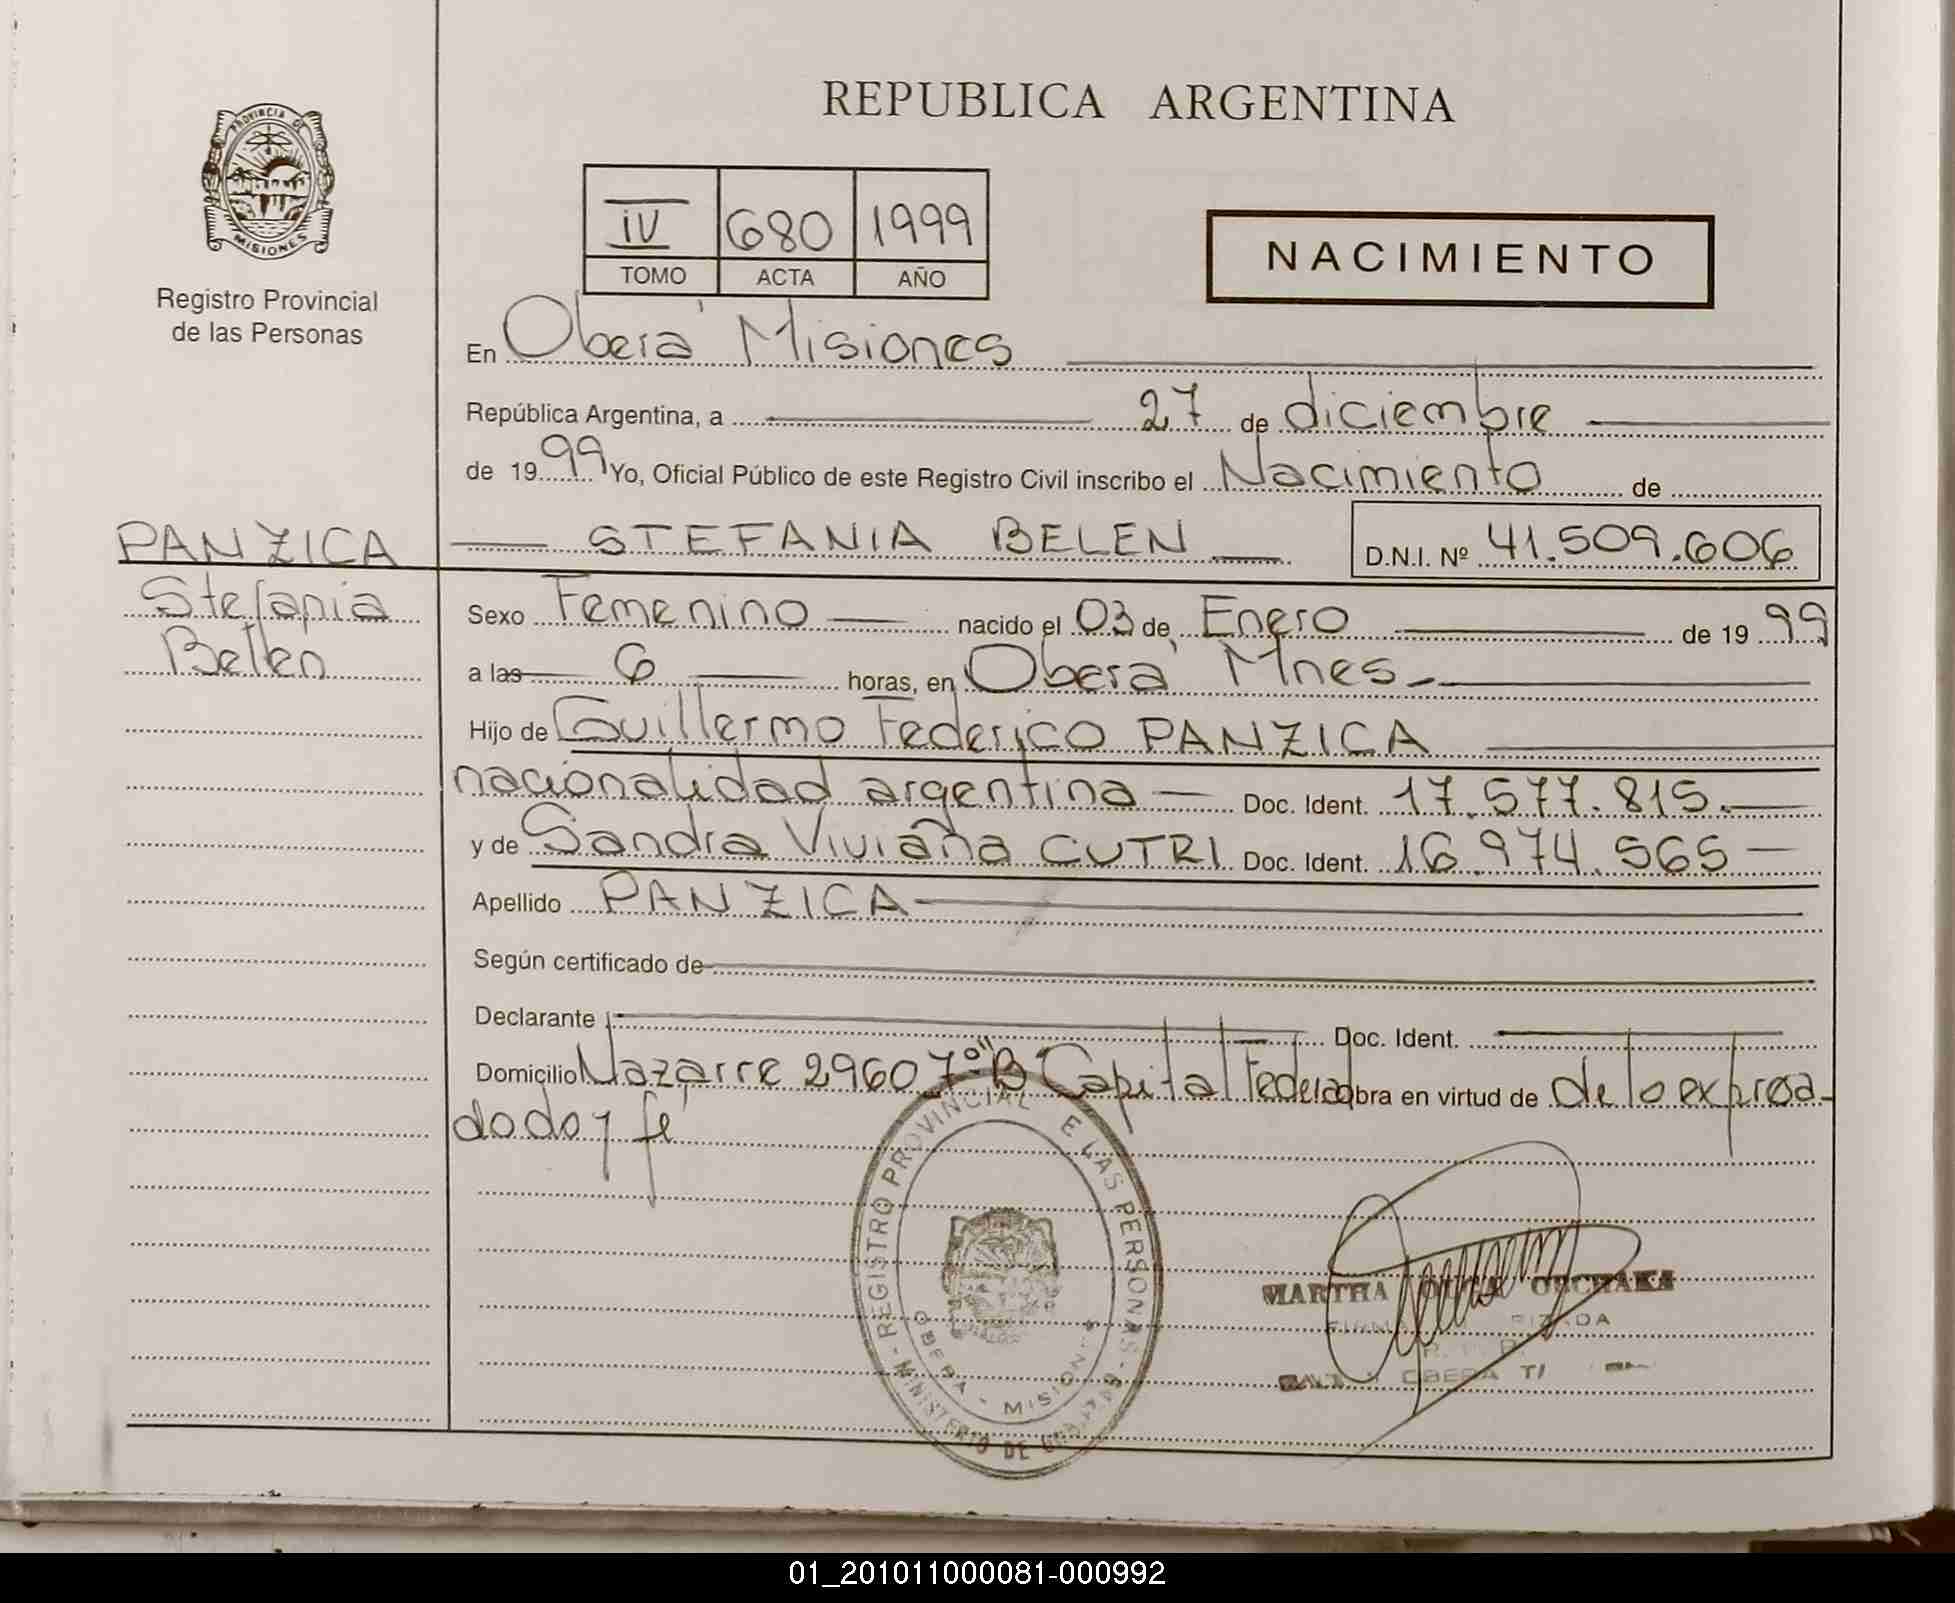 REPUBLICA ARGENTINA
PROVINCIA DE
MISIONES
Registro Provincial
de las Personas
IV 680 1999
TOMO ACTA AÑO
NACIMIENTO
En Oberá Misiones
República Argentina, a 27 de diciembre
de 1999 Yo, Oficial Público de este Registro Civil inscribo el Nacimiento de
PANZICA STEFANIA BELEN D.N.I. Nº 41.509.606
Stefania
Belen
Sexo Femenino nacido el 03 de Enero de 1999
a las 6 horas, en Oberá Mnes.
Hijo de Guillermo Federico PANZICA
nacionalidad argentina Doc. Ident. 17.577.815.
y de Sandra Viviana CUTRI Doc. Ident. 16.974.565
Apellido PANZICA
Según certificado de
Declarante Doc. Ident.
Domicilio Nazarre 2960 7º "B" Capital Federal obra en virtud de de lo expresa-
do doy fé
REGISTRO PROVINCIAL E LAS PERSONAS - MINISTERIO DE
OBERA - MISION
MARTHA OLGA
OBERA
01_201011000081-000992